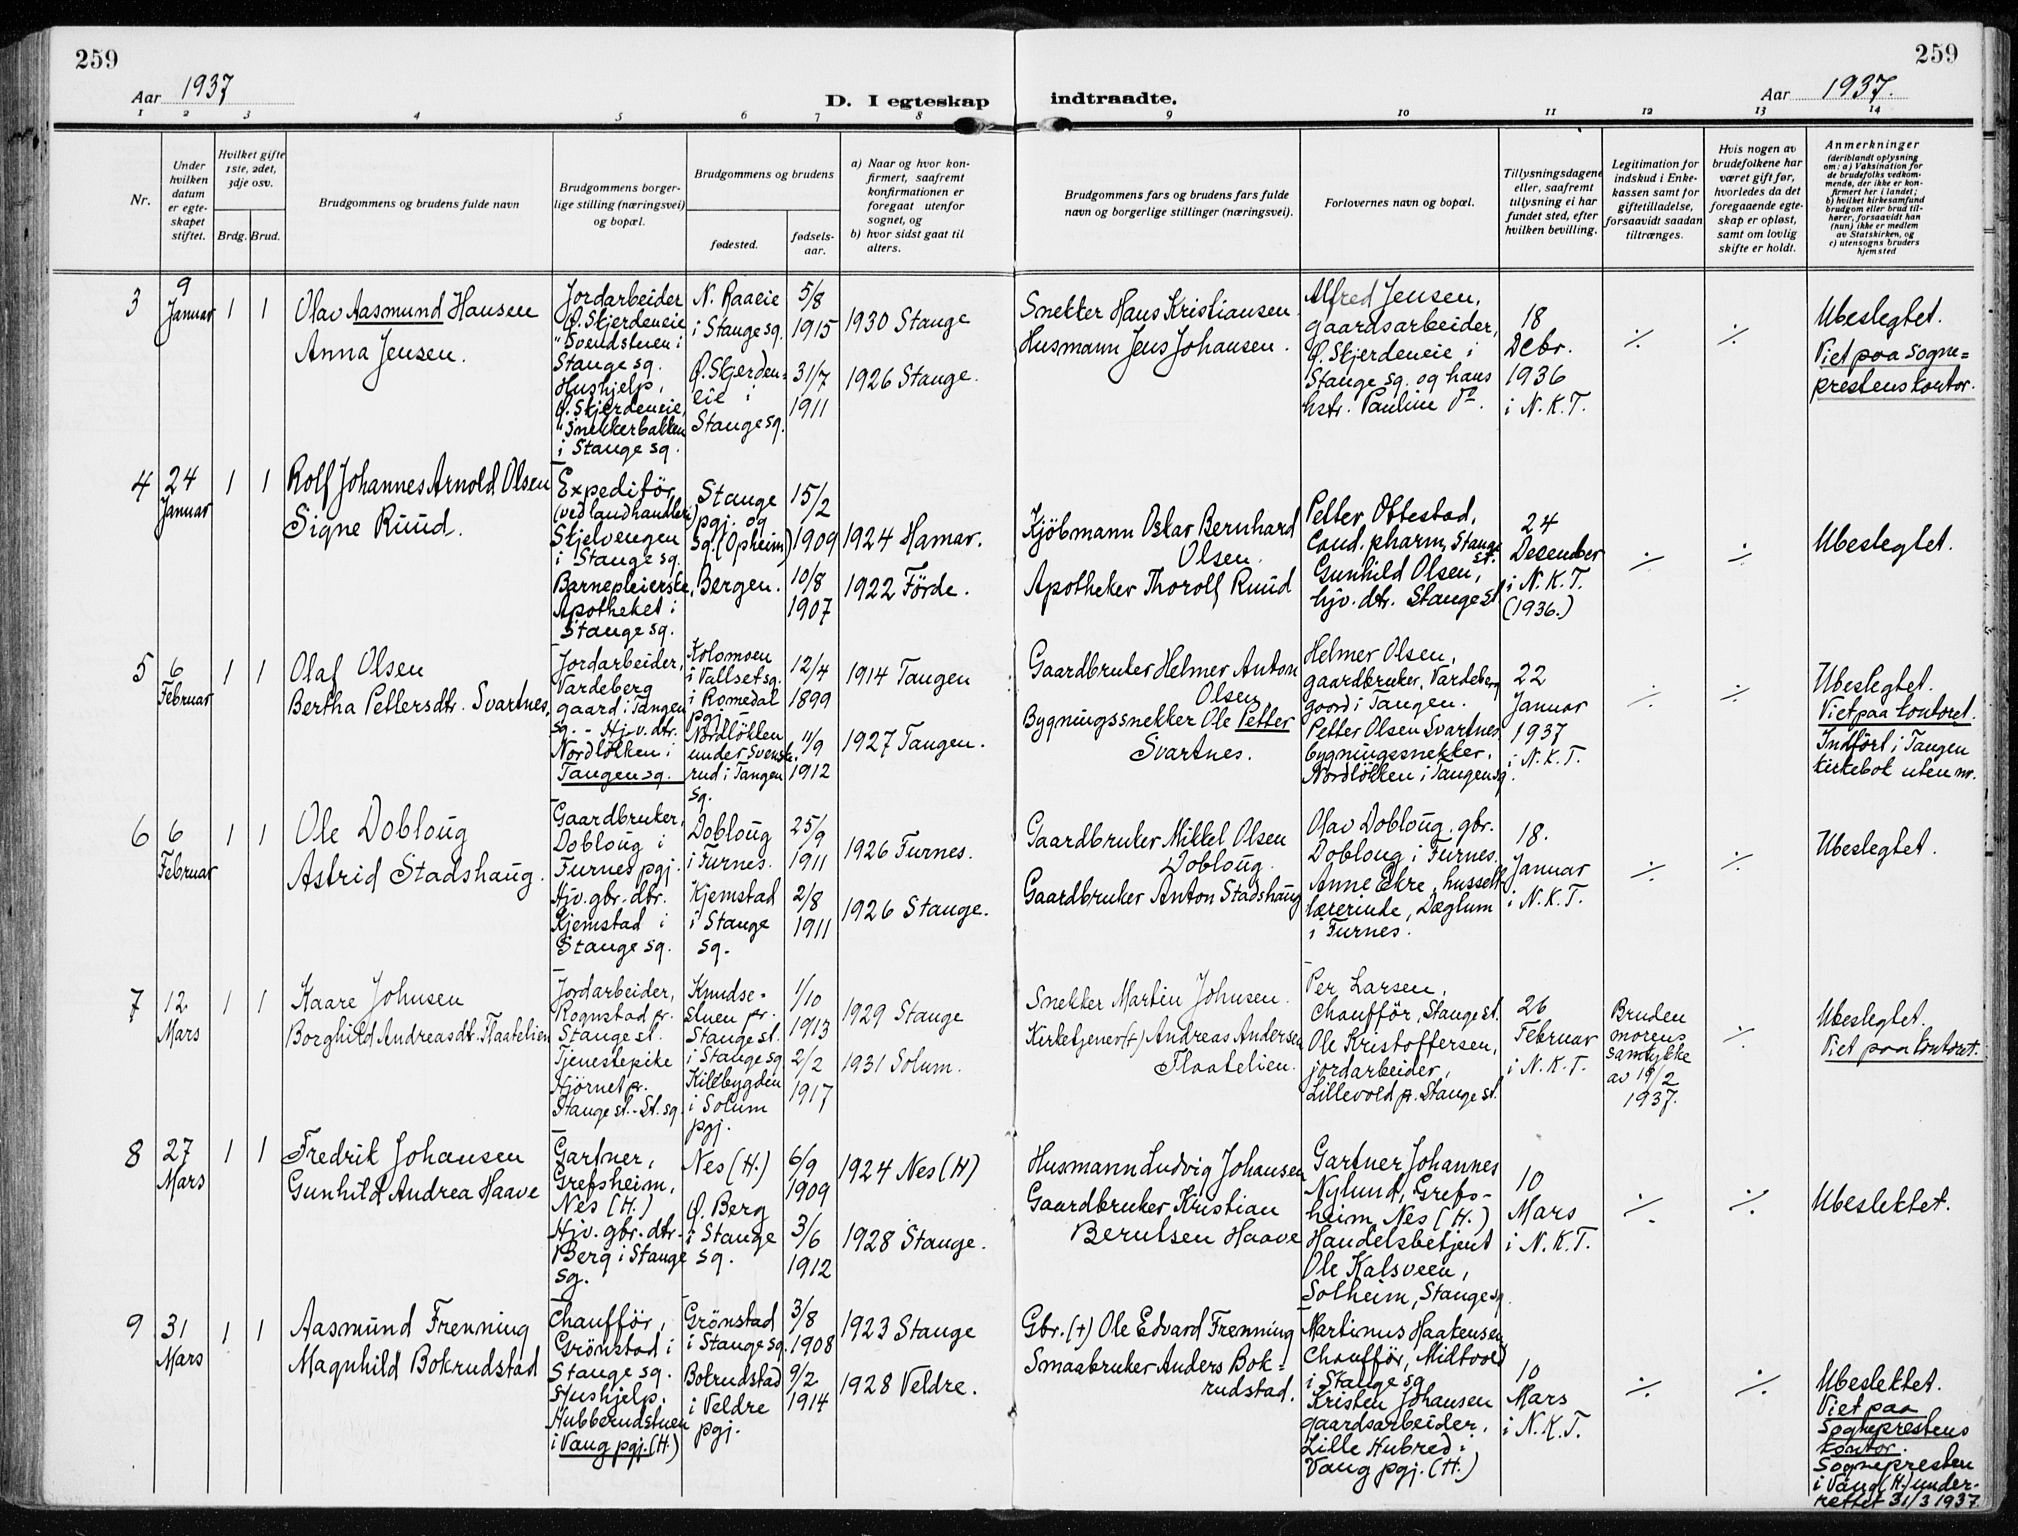 259
259
Aar 1937
D. I egteskap
indtraadte.
Aar 1937.
1 2 3 4 5 6 7 8 9 10 11 12 13 14
Nr.
Under
hvilken
datum
er egte-
skapet
stiftet.
Hvilket gifte
1ste, 2det,
3dje osv.
Brdg. Brud.
Brudgommens og brudens fulde navn
Brudgommens borger-
lige stilling (næringsvei)
og bopæl.
Brudgommens og brudens
fødested.
fødsels-
aar.
a) Naar og hvor kon-
firmert, saafremt
konfirmationen er
foregaat utenfor
sognet, og
b) hvor sidst gaat til
alters.
Brudgommens fars og brudens fars fulde
navn og borgerlige stillinger (næringsvei).
Forlovernes navn og bopæl.
Tillysningsdagene
eller, saafremt
tillysning ei har
fundet sted, efter
hvilken bevilling.
Legitimation for
indskud i Enke-
kassen samt for
giftetilladelse,
forsaavidt saadan
tiltrænges.
Hvis nogen av
brudefolkene har
været gift før,
hvorledes da det
foregaaende egte-
skap er opløst,
samt om lovlig
skifte er holdt.
Anmerkninger
(deriblandt oplysning
om: a) Vaksination for
de brudefolks vedkom-
mende, der ikke er kon-
firmert her i landet;
b) hvilket kirkesamfund
brudgom eller brud til-
hører, forsaavidt han
(hun) ikke er medlem
av Statskirken, og
c) utensogns bruders
hjemsted
3
9
Januar
1 1
Olav Aasmund Hansen
Anna Jensen.
Jordarbeider
Ø. Skjerdeneie
"Svendstuen i
Stange sg.
Hushjelp,
Ø. Skjerdeneie,
"Snekkerbakken
i Stange sg.
N. Raaeie
i Stange sg.
Ø. Skjerden-
eie i
Stange sg.
5/8
1915
31/7
1911
1930 Stange
1926 Stange.
Snekker Hans Kristiansen
Husmann Jens Johansen.
Alfred Jensen,
gaardsarbeider,
Ø. Skjerdeneie i
Stange sg. og hans
hstr. Pauline Do.
18
Debr.
1936
i N.K.T.
./.
./.
Ubeslegtet.
Viet paa sogne=
prestens kontor.
4
24
Januar
1 1
Rolf Johannes Arnold Olsen
Signe Ruud.
Expeditør
(ved landhandleri)
Skjelvengen
i Stange sg.
Barnepleierske,
Apotheket i
Stange sg.
Stange
pgj. og
sg. (Opheim)
Bergen.
15/2
1909
10/8
1907
1924 Hamar.
1922 Förde.
Kjöbmann Oskar Bernhard
Olsen.
Apotheker Thorolf Ruud
Petter Ottestad,
Cand. pharm, Stange
st.
Gunhild Olsen,
hjv. dtr. Stange st.
24
Desember
i N.K.T.
(1936.)
./.
./.
Ubeslegtet.
5
6
Februar
1 1
Olaf Olsen
Bertha Pettersdtr. Svartnes.
Jordarbeider,
Vardeberg
gaard i Tangen
sg. - Hjv. dtr.
Nordløkken i
Tangen sg.
Kolomoen
i Vallset sg.
i Romedal
pgj.
Nordløkken
under Svenke-
rud i Tangen
sg.
12/4
1899
11/9
1912
1914 Tangen
1927 Tangen.
Gaardbruker Helmer Anton
Olsen
Bygningssnekker Ole Petter
Svartnes.
Helmer Olsen,
gaardbruker, Vardeberg
gaard i Tangen.
Petter Olsen Svartnes
bygningssnekker,
Nordløkken i Tangen sg.
22
Januar
1937
i N.K.T.
./.
./.
Ubeslegtet.
Viet paa kontoret.
Indført i Tangen
kirkebok uten nr.
6
6
Februar
1 1
Ole Dobloug
Astrid Stadshaug.
Gaardbruker,
Dobloug i
Furnes pgj.
Hjv. gbr. dtr.
Kjemstad i
Stange sg.
Dobloug
i Furnes.
Kjemstad
i Stange
sg.
25/9
1911
2/8
1911
1926 Furnes.
1926 Stange.
Gaardbruker Mikkel Olsen
Dobloug.
Gaardbruker Anton Stadshaug
Olav Dobloug, gbr.
Dobloug i Furnes.
Anne Ekre, husstell
lærerinde, Dæglum
i Furnes.
18.
Januar
i N.K.T.
./.
./.
Ubeslegtet.
7
12
Mars
1 1
Kaare Johnsen
Borghild Andreasdt. Flaatelien
Jordarbeider,
Rognstad pr.
Stange st.
Tjenestepike
Hjørnet pr.
Stange st. - St. sg.
Knudse-
stuen pr.
Stange st.
i Stange sg
Kilebygden
i Solum
pgj.
1/10
1913
2/2
1917
1929 Stange
1931 Solum.
Snekker Martin Johnsen.
Kirketjener (+) Andreas Andersen
Flaatelien.
Per Larsen,
Chauffør, Stange st.
Ole Kristoffersen,
jordarbeider,
Lillevold pr. Stange st.
26
Februar
i N.K.T.
Bruden
morens
samtykke
av 19/2
1937.
./.
Ubeslegtet.
Viet paa kontoret.
8
27
Mars
1 1
Fredrik Johansen
Gunhild Andrea Haave
Gartner,
Grefsheim,
Nes (H.)
Hjv. gbr. dtr.
Berg i Stange
sg.
Nes (H.)
Ø. Berg
i Stange
sg.
6/9
1909
3/6
1912
1924 Nes (H)
1928 Stange.
Husmann Ludvig Johansen
Gaardbruker Kristian
Berntsen Haave
Gartner Johannes
Nylund, Grefs-
heim, Nes (H.)
Handelsbetjent
Ole Kalsveen,
Solheim, Stange sg.
10
Mars
i N.K.T.
./.
./.
Ubeslektet.
9
31
Mars
1 1
Aasmund Frenning
Magnhild Bokrudstad
Chauffør,
Grönstad i
Stange sg.
Hushjelp,
Hubberudstuen
i Vang pgj. (H.)
Grönstad
i Stange sg.
Bokrudstad
i Veldre
pgj.
3/8
1908
9/2
1914
1923 Stange
1928 Veldre.
Gbr. (+) Ole Edvard Frenning
Smaabruker Anders Bok=
rudstad.
Martinus Haakensen
Chauffør, Midtvold
i Stange sg.
Kristen Johansen
gaardsarbeider,
Lille Hubred i
Vang pgj. (H.)
10
Mars
i N.K.T.
./.
./.
Ubeslektet.
Viet paa
Sogneprestens
kontor.
Sognepresten
i Vang (H.) under-
rettet 31/3 1937.